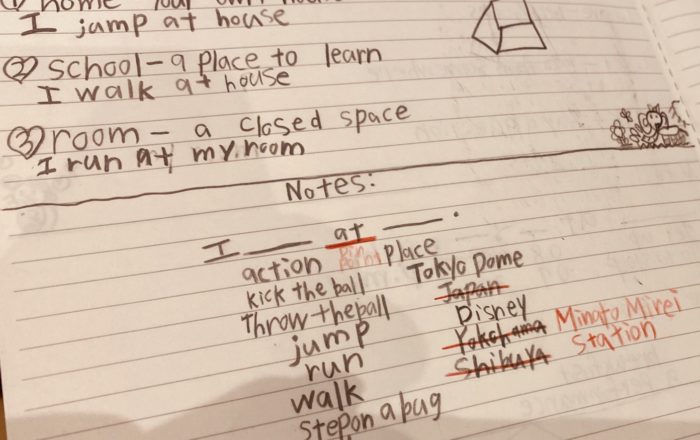 ① home your own hou
I jump at house
② school-a place to learn
I walk at house
③ room- a closed space
I run at my room
Notes:
I ___ at ___.
action Point place
kick the ball Tokyo Dome
throw the ball Japan
jump Disney
run Yokohama Minato Mirei
walk Shibuya Station
step on a bug